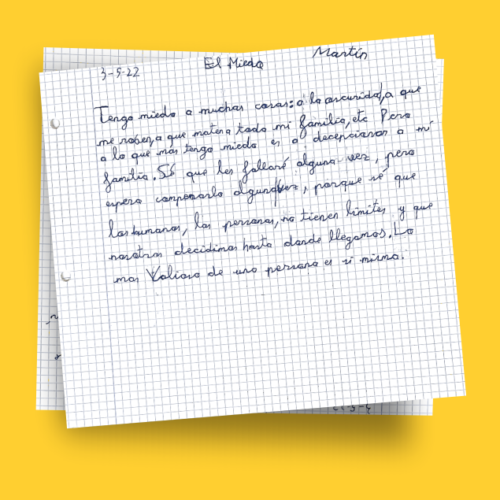 3-5-22 El Miedo Martín
Tengo miedo a muchas cosas: a la oscuridad, a que
me roben, a que maten a toda mi familia, etc Pero
a lo que más tengo miedo es a decepcionar a mi
familia. Sé que les fallaré alguna vez, pero
espero compensarlo alguna vez, porque sé que
los humanos, las personas, no tienen límites y que
nosotros decidimos hasta donde llegamos. Lo
mas Valioso de una persona es si mismo.